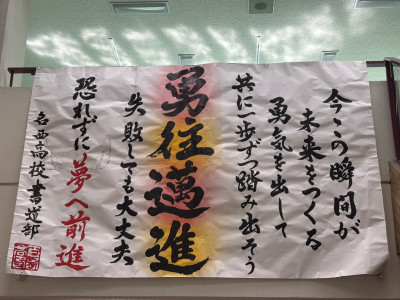 今この瞬間が
未来をつくる
勇気を出して
共に一歩ずつ踏み出そう
勇往邁進
失敗しても大丈夫
恐れずに夢へ前進
名西高校書道部